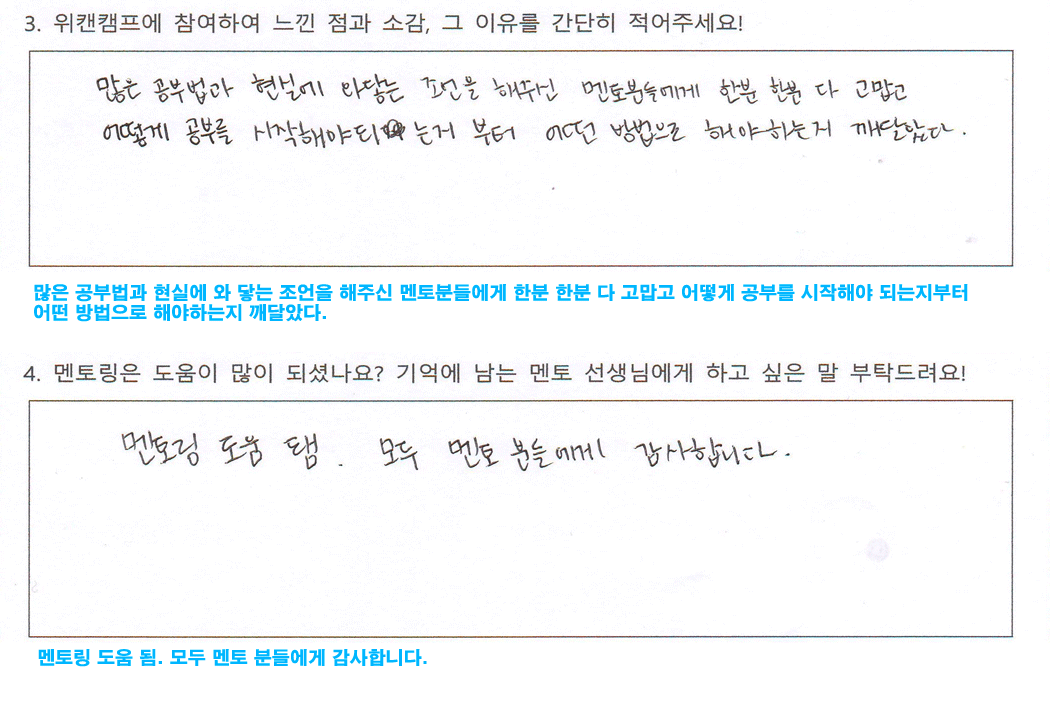 3. 위캔캠프에 참여하여 느낀 점과 소감, 그 이유를 간단히 적어주세요!
많은 공부법과 현실에 와닿는 조언을 해주신 멘토분들에게 한분 한분 다 고맙고
어떻게 공부를 시작해야되 는거 부터 어떤 방법으로 해야하는지 깨달았다.
많은 공부법과 현실에 와 닿는 조언을 해주신 멘토분들에게 한분 한분 다 고맙고 어떻게 공부를 시작해야 되는지부터
어떤 방법으로 해야하는지 깨달았다.
4. 멘토링은 도움이 많이 되셨나요? 기억에 남는 멘토 선생님에게 하고 싶은 말 부탁드려요!
멘토링 도움 됌. 모두 멘토 분들에게 감사합니다.
멘토링 도움 됨. 모두 멘토 분들에게 감사합니다.